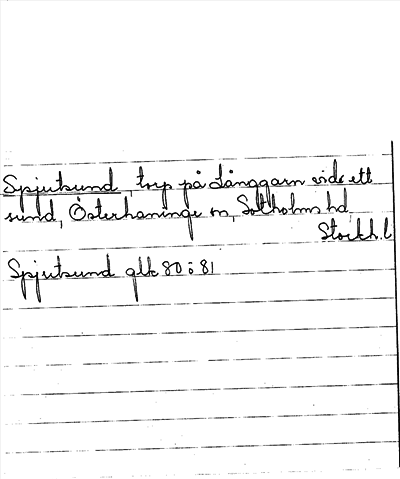 Spjutsund, torp på Långgarn vid ett
sund, Österhaninge sn, Sotholms hd,
Stockh. l
Spjutsund glk 80:81